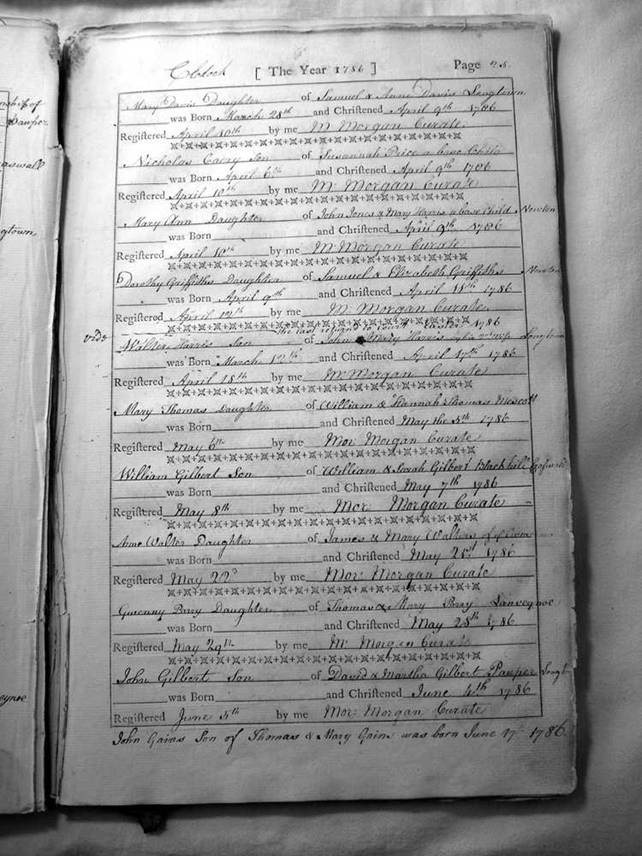 Clodock [ The Year 1786 ] Page 28.
Mary Davis Daughter of Samuel & Anne Davis Longtown
was Born March 28th and Christened April 9th 1786
Registered April 10th by me M Morgan Curate
Nicholas Son of Susannah Price a base Child
was Born April 6th and Christened April 9th 1786
Registered April 10th by me Mr Morgan Curate
Mary Ann Daughter of John Jones & Mary Harris a base Child Newton
was Born and Christened April 9th 1786
Registered April 10th by me M Morgan Curate
Dorothy Griffiths Daughter of Samuel & Elizabeth Griffiths Newton
was Born April 9th and Christened April 11th 1786
Registered April 12th by me M Morgan Curate
1786
vide Walter Harris Son of John & Mary Harris
was Born March 12th and Christened April 17th 1786
Registered April 18th by me Mr Morgan Curate
Mary Thomas Daughter of William & Hannah Thomas
was Born and Christened May the 5th 1786
Registered May 6th by me Mor Morgan Curate
William Gilbert Son of William & Sarah Gilbert Blackhill
was Born and Christened May 7th 1786
Registered May 8th by me Mor Morgan Curate
Anne Walter Daughter of James & Mary Walters
was Born and Christened May 21st 1786
Registered May 22d by me Mor Morgan Curate
Parry Daughter of Thomas & Mary Parry
was Born and Christened May 28th 1786
Registered May 29th by me Mr Morgan Curate
John Gilbert Son of David & Martha Gilbert Pauper
was Born and Christened June 4th 1786
Registered June 5th by me Mor Morgan Curate
John Gains Son of Thomas & Mary Gains was born June 17 1786